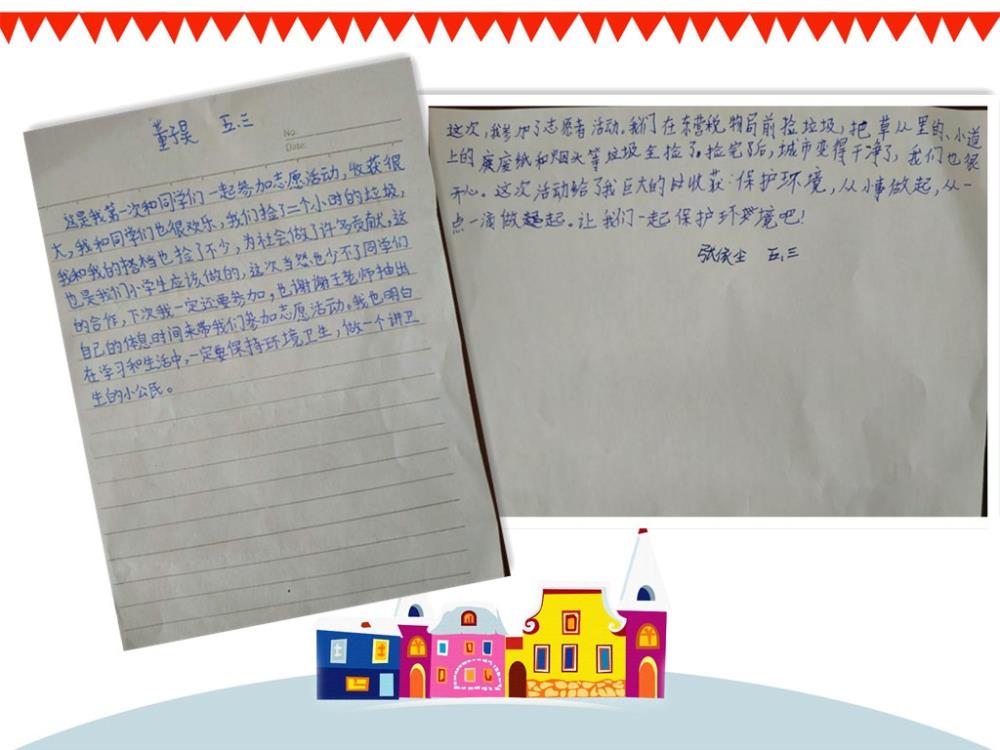 董子昊 五.三
No.
Date:
这是我第一次和同学们一起参加志愿活动，收获很
大，我和同学们也很欢乐，我们捡了二个小时的垃圾，
我和我的搭档也捡了不少，为社会做了许多贡献。这
也是我们小学生应该做的，这次当然也少不了同学们
的合作，下次我一定还要参加，也谢谢王老师抽出
自己的休息时间来带我们参加志愿活动。我也明白
在学习和生活中，一定要保持环境卫生，做一个讲卫
生的小公民。
这次，我参加了志愿者活动。我们在东营税务局前捡垃圾，把草丛里的、小道
上的废纸和烟头等垃圾全捡了。捡完了后，城市变得干净了，我们也很
开心。这次活动给了我巨大的收获：保护环境，从小事做起，从一
点一滴做起。让我们一起保护环境吧！
张 五.三